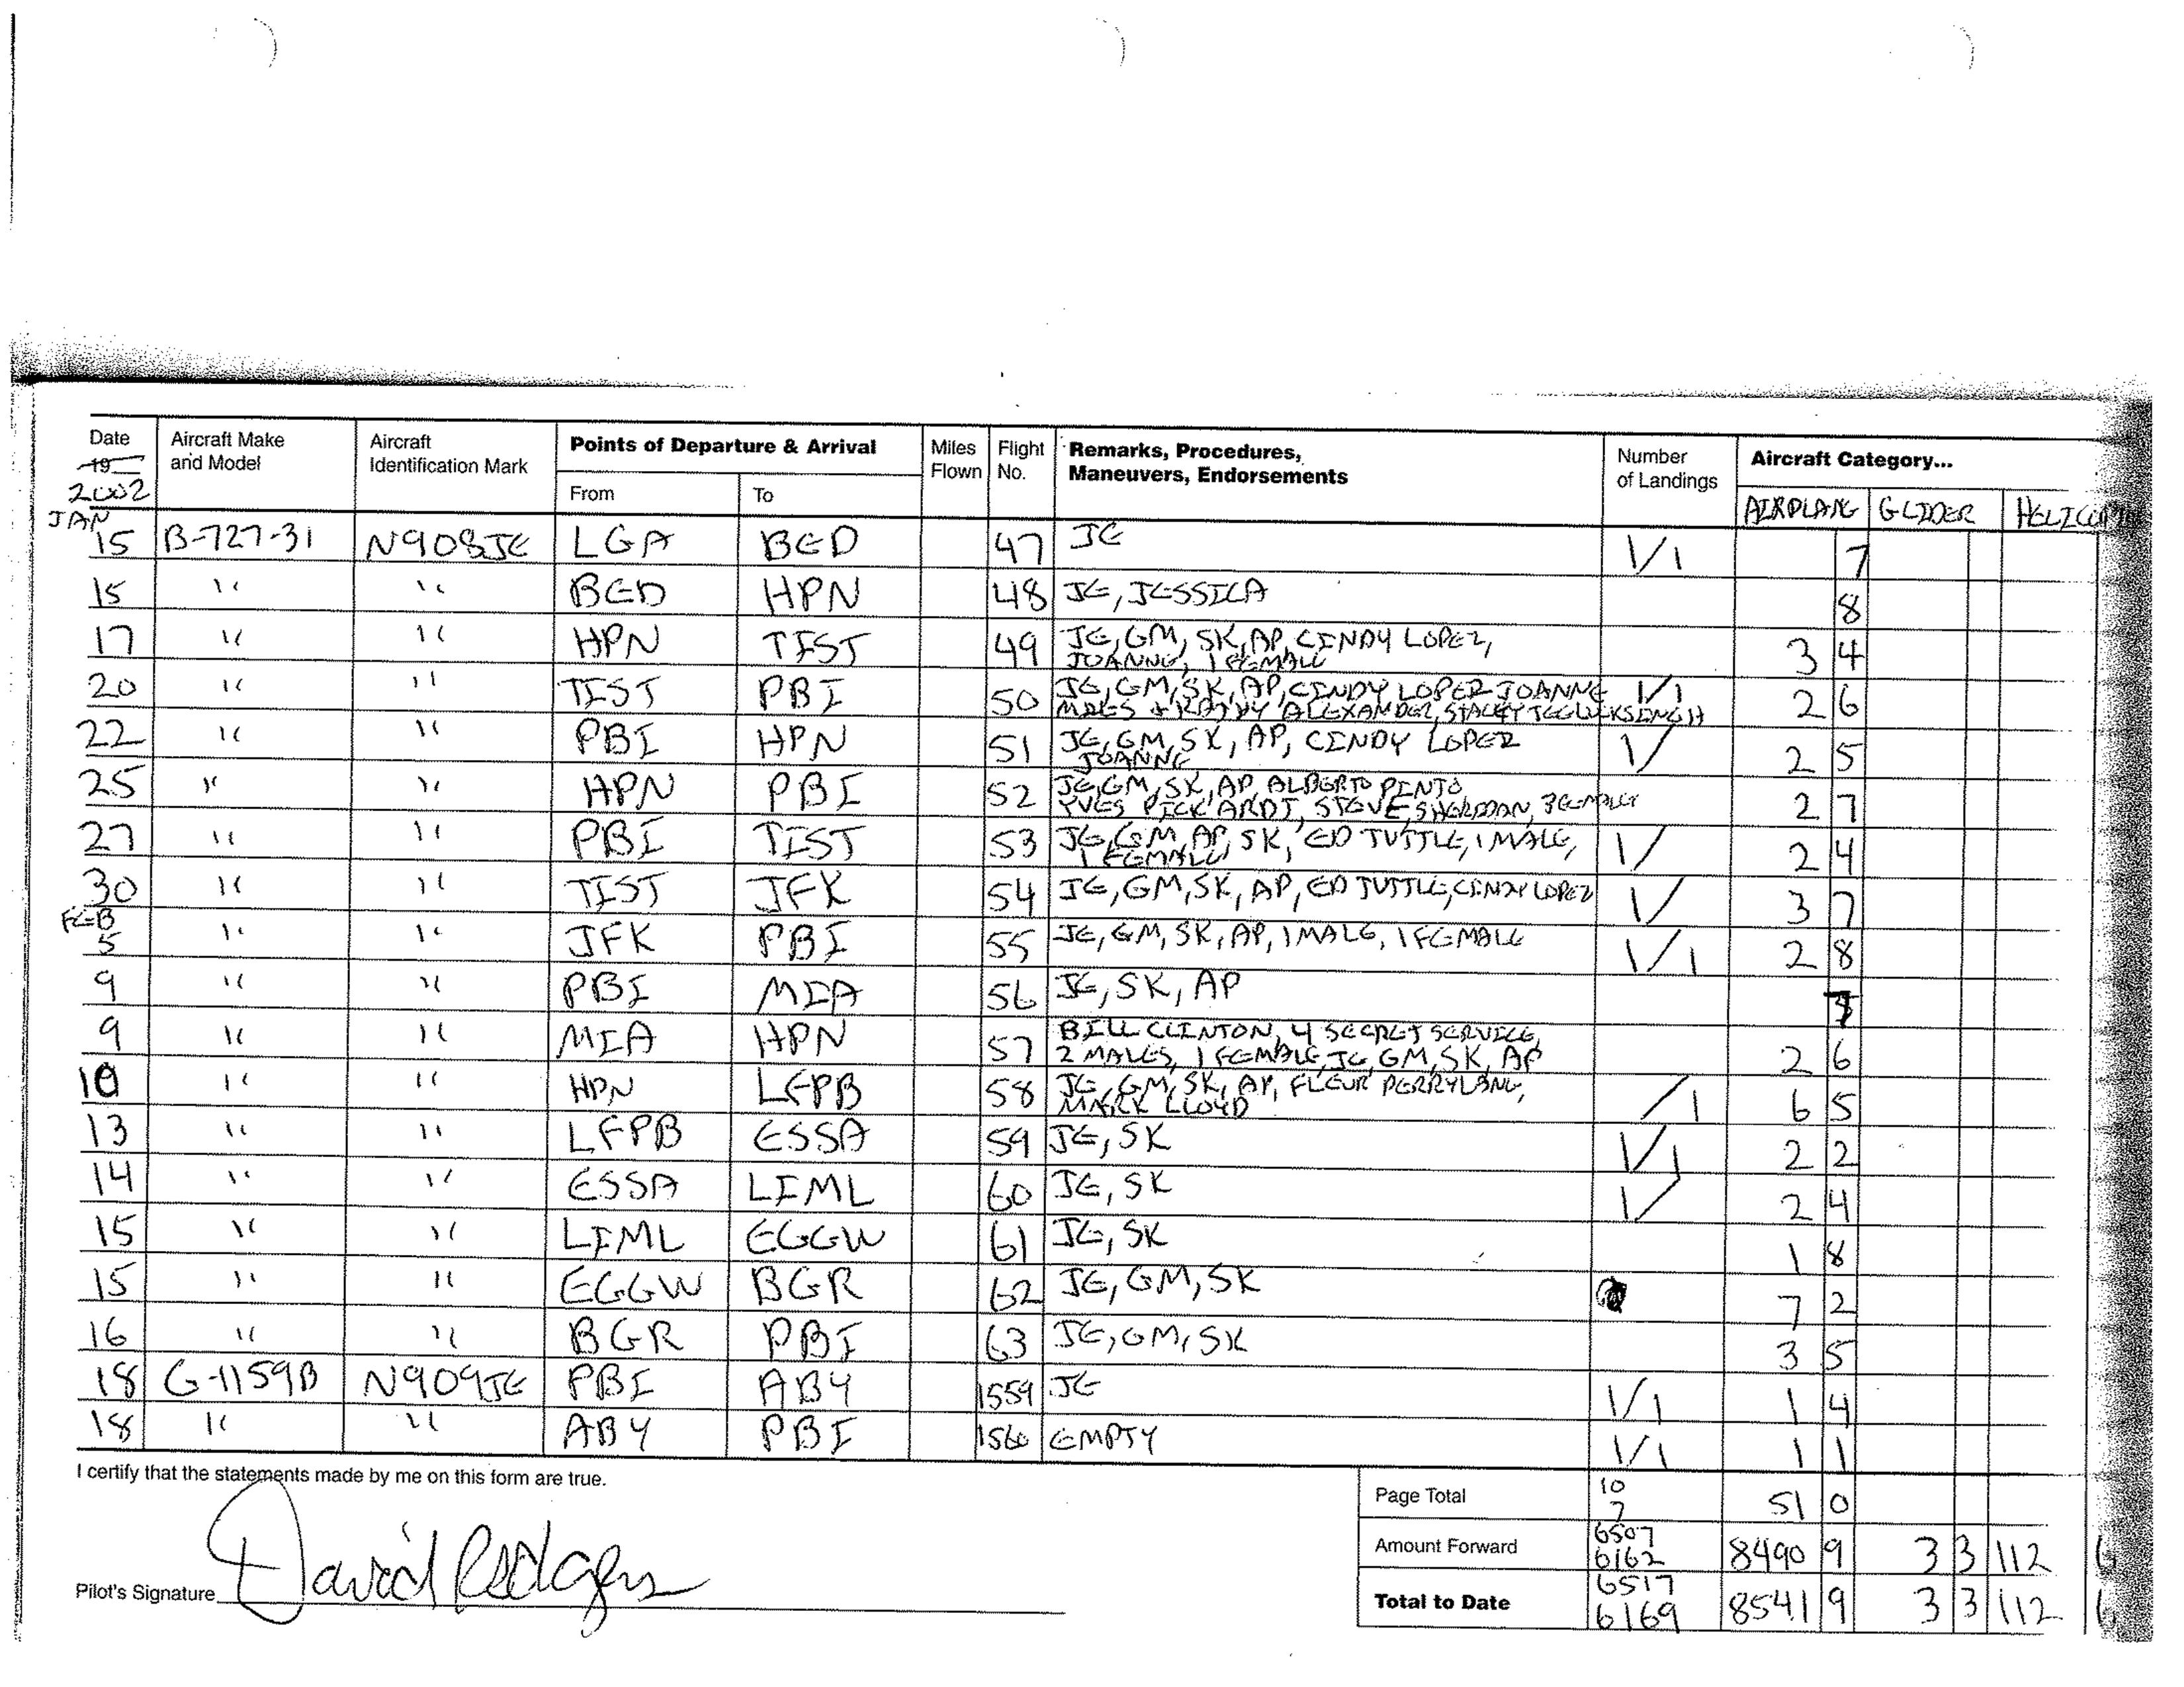 Date Aircraft Make Aircraft Points of Departure & Arrival Miles Flight Remarks, Procedures, Number Aircraft Category...
19 and Model Identification Mark Flown No. Maneuvers, Endorsements of Landings
2002 From To AIRPLANE GLIDER
JAN
15 B-727-31 N908JE LGA BED 47 JE 1/1 7
15 " " BED HPN 48 JE, JESSICA 8
17 " " HPN TIST 49 JE, GM, SK, AP, CINDY LOPEZ, 3 4
JOANNE, 1 FEMALE
20 " " TIST PBI 50 JE, GM, SK, AP, CINDY LOPEZ JOANNE 1/1 2 6
ALEXANDER,
22 " " PBI HPN 51 JE, GM, SK, AP, CINDY LOPEZ 1/ 2 5
JOANNE
25 " " HPN PBI 52 JE, GM, SK, AP, ALBERTO PINTO 2 7
YVES PICKARDT, STEVE, SHERIDAN, 3 FEMALE
27 " " PBI TIST 53 JE, GM, AP, SK, ED TUTTLE, 1 MALE, 1/ 2 4
1 FEMALE
30 " " TIST JFK 54 JE, GM, SK, AP, ED TUTTLE, CINDY LOPEZ 1/ 3 7
FEB
5 " " JFK PBI 55 JE, GM, SK, AP, 1 MALE, 1 FEMALE 1/1 2 8
9 " " PBI MIA 56 JE, SK, AP
9 " " MIA HPN 57 BILL CLINTON, 4 SECRET SERVICE, 2 6
2 MALES, 1 FEMALE, JE, GM, SK, AP
10 " " HPN LFPB 58 JE, GM, SK, AP, FLEUR PERRYLANG, /1 6 5
MARK LLOYD
13 " " LFPB ESSA 59 JE, SK 1/1 2 2
14 " " ESSA LIML 60 JE, SK 1/ 2 4
15 " " LIML EGGW 61 JE, SK 1 8
15 " " EGGW BGR 62 JE, GM, SK 7 2
16 " " BGR PBI 63 JE, GM, SK 3 5
18 G-1159B N909JE PBI ABY 1559 JE 1/1 1 4
18 " " ABY PBI 1560 EMPTY 1/1 1 1
I certify that the statements made by me on this form are true.
Page Total 10 7 51 0
Amount Forward 6507 6162 8490 9 3 3 112
Total to Date 6517 6169 8541 9 3 3 112
Pilot's Signature David Rodgers